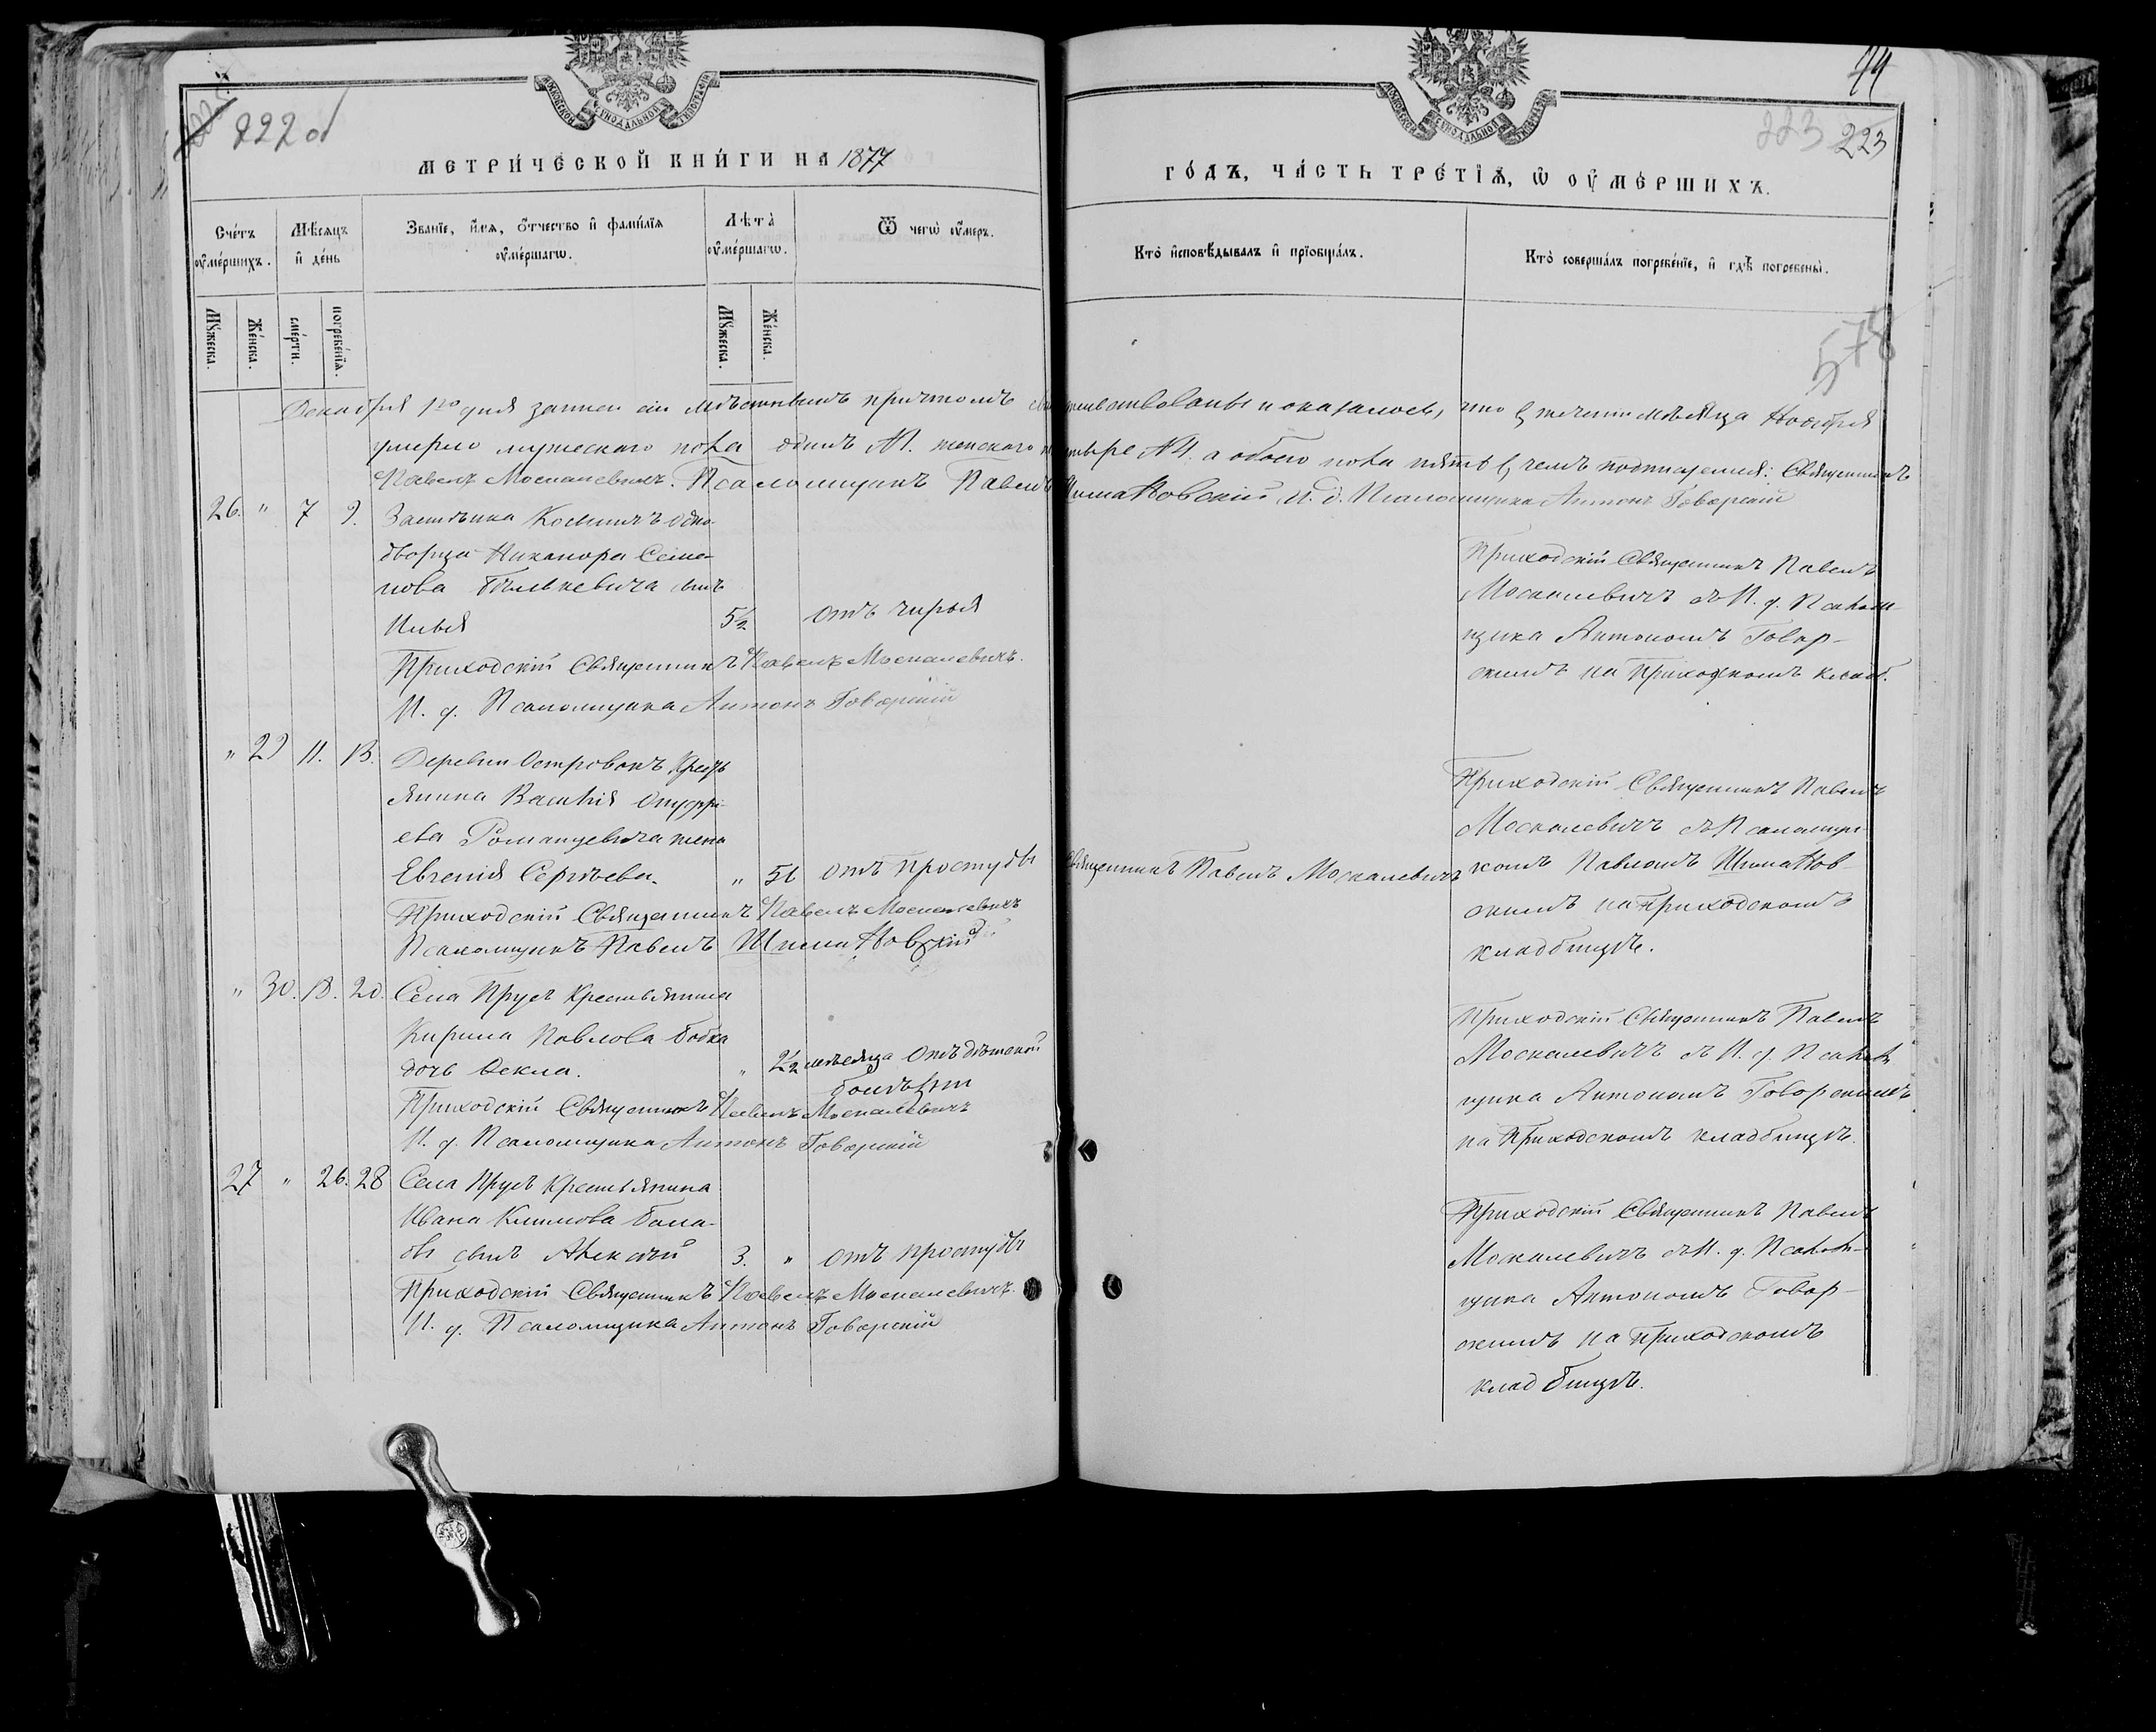 222 об
МЕТРИЧЕСКОЙ КНИГИ НА 1877
Счетъ умершихъ.
Мѣсяцъ и день
Званіе, имя, отчество и фамилія умершагѡ.
Лѣта умершагѡ.
Ѿ чегѡ умеръ.
Мужеска.
Женска.
смерти.
погребенїѧ.
Мужеска.
Женска.
74
223
223
ГОДЪ, ЧАСТЬ ТРЕТІѦ, Ѡ ОУМЕРШИХЪ.
Кто исповѣдывалъ и прїобщалъ.
Кто совершалъ погребенїе, и гдѣ погребены.
578
Декабря 1го дня записи сіи мѣстнымъ причтомъ свидѣтельствованы и оказалось, что въ теченіи мѣсяца Ноября
умерло мужескаго пола одинъ /1/. женскаго четыре /4/. а обоего пола пять въ чемъ подписуемся: Священникъ
Павелъ Москалевичъ. Псаломщикъ Павелъ Шиманскій И. д. Псаломщика Антонъ Говорскій
26. " 7 9. Застѣнка Космилъ одно-
дворца Никанора Семе-
нова Бѣлькевича сынъ
Илья 5½ отъ чирья
Приходскій Священникъ Павелъ Москалевичъ.
И. д. Псаломщика Антонъ Говорскій
Приходскій Священникъ Павелъ
Москалевичъ съ И. д. Псалом-
щика Антономъ Говор-
скимъ на Приходскомъ кладб.
" 29 11. 13. Деревни Островокъ Кресть
янина Василія Онуфрі-
ева Романцевича жена
Евгенія Сергѣева. " 51 отъ простуды
Приходскій Священникъ Павелъ Москалевичъ
Псаломщикъ Павелъ Шимановскій
Священникъ Павелъ Москалевичъ
Приходскій Священникъ Павелъ
Москалевичъ съ Псаломщи-
комъ Павломъ Шиманов-
скимъ на приходскомъ
кладбищѣ.
" 30. 18. 20. Села Прусъ Крестьянина
Кирила Павлова Бобка
дочь Ѳекла. " 2½ мѣсяца Отъ дѣтской
болѣзни
Приходскій Священникъ Павелъ Москалевичъ
И. д. Псаломщика Антонъ Говорскій
Приходскій Священникъ Павелъ
Москалевичъ съ И. д. Псалом
щика Антономъ Говорскимъ
на Приходскомъ кладбищѣ.
27 " 26. 28 Села Прусъ Крестьянина
Ивана Климова Бала-
бы сынъ Алексѣй 3. " отъ простуды
Приходскій Священникъ Павелъ Москалевичъ.
И. д. Псаломщика Антонъ Говорскій
Приходскій Священникъ Павелъ
Москалевичъ съ И. д. Псалом-
щика Антономъ Говор-
скимъ на приходскомъ
кладбищѣ.